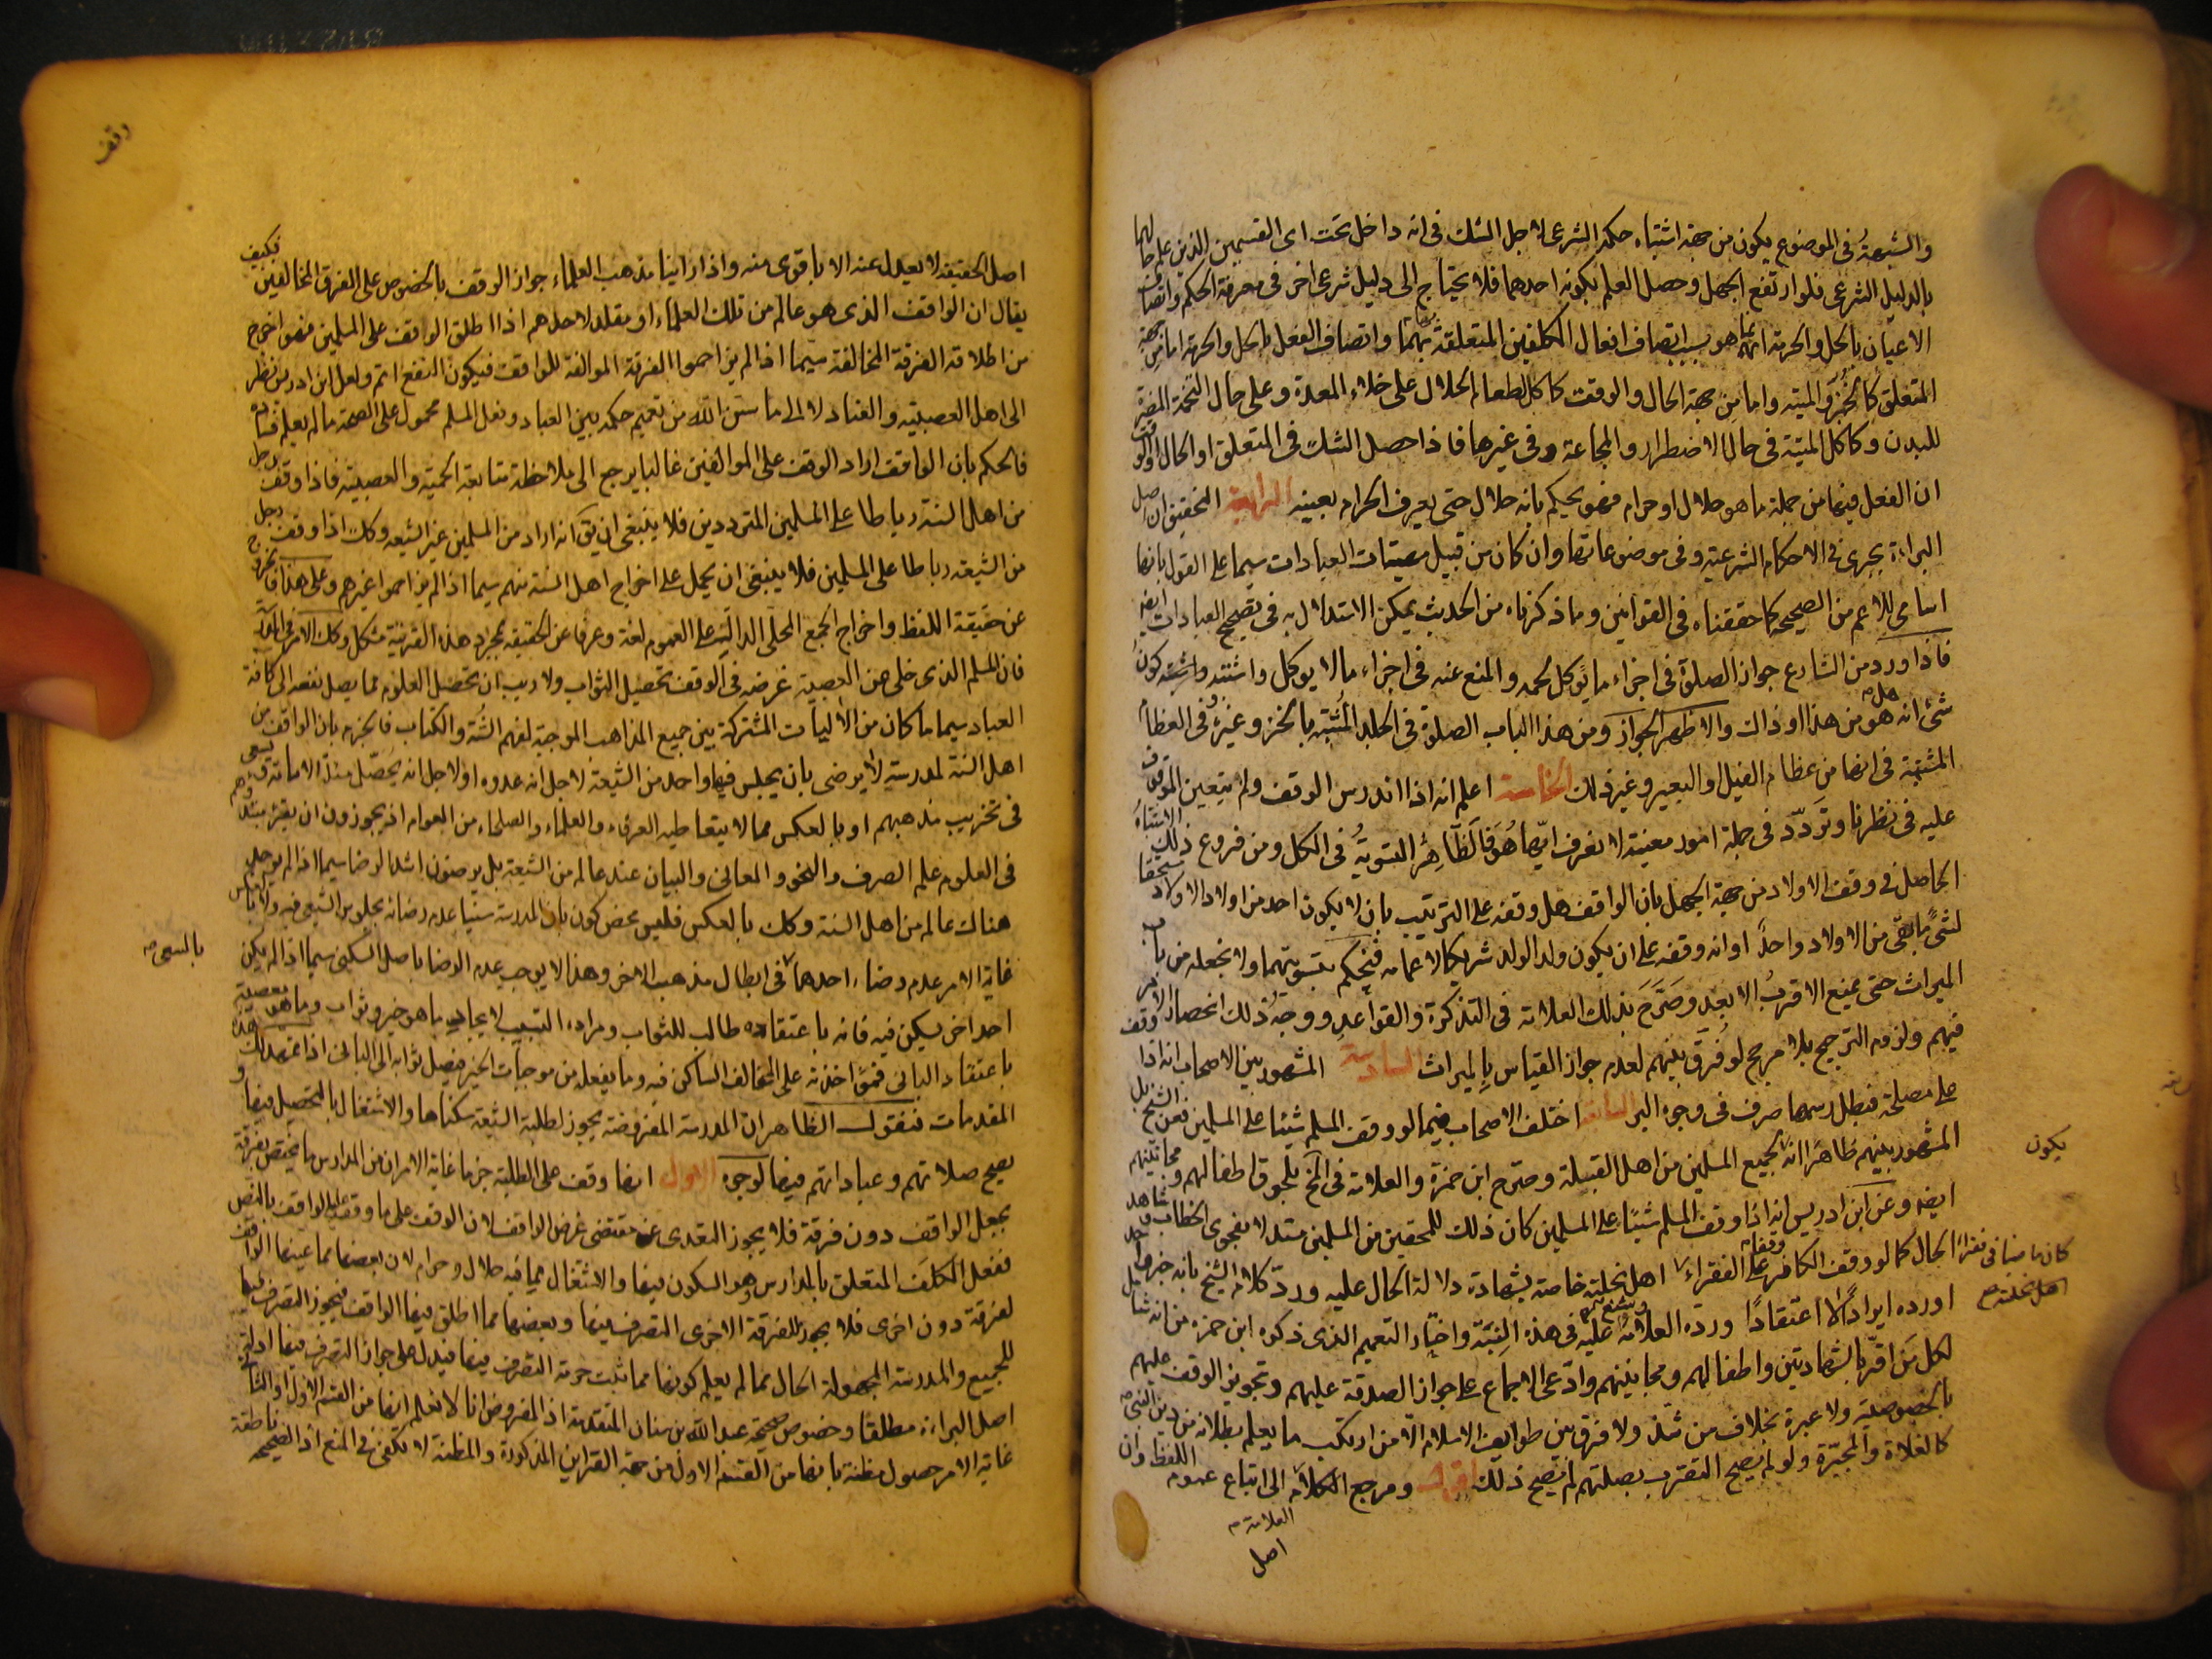 والشبهة في الموضوع يكون من جهة اشتباه حكمه الشرعى لاجل الشك فى انه داخل تحت اى القسمين الذين علم حالهما
بالدليل الشرعى فلو ارتفع الجهل وحصل العلم بكونه احدهما فلا يحتاج الى دليل شرعى اخر فى معرفة الحكم واتصاف
الاعيان بالحل والحرمة انما هو بسبب اتصاف افعال المكلفين المتعلقة بهما واتصاف الفعل بالحل والحرمة اما من جهة
المتعلق كالخمر والميتة واما من جهة الحال والوقت كاكل الطعام الحلال على خلاء المعدة وعلى حال التخمة المضرة
للبدن وكاكل الميتة فى حال الاضطرار والمجاعة وفى غيرها فاذا حصل الشك فى المتعلق او الحال او الوقت
ان الفعل فيها من جملة ما هو حلال او حرام فهو يحكم بانه حلال حتى يعرف الحرام بعينه الرابعة التحقيق ان اصل
البراءة يجرى فى الاحكام الشرعية وفى موضوعاتها وان كان من قبيل مهيات العبادات سيما على القول بانها
اسامى للاعم من الصحيحة كما حققناه فى القوانين وما ذكرناه من الحديث يمكن الاستدلال به فى تصحيح العبادات ايضا
فاذا ورد من الشارع جواز الصلوة فى اجزاء ما يوكل لحمه والمنع عنه فى اجزاء ما لا يوكل واشتبه كون
شئ انه هل هو من هذا او ذاك والاظهر الجواز ومن هذا الباب الصلوة فى الجلد المشتبه بالخز وغيره وفى العظام
المشتبهة فى انها من عظام الفيل او البعير وغير ذلك الخامسة اعلم انه اذا اندرس الوقف ولم يتعين الموقوف
عليه فى نظرنا وتردد فى جملة امور معينة لا نعرف ايها هو فالظاهر التسوية فى الكل ومن فروع ذلك الاشتباه
الحاصل فى وقف الاولاد من جهة الجهل بان الواقف هل وقفه على الترتيب بان لا يكون احد من اولاد الاولاد مستحقا
لشئ ما بقى من الاولاد واحد او انه وقفه على ان يكون ولد الولد شريكا لاعمامه فيحكم بتسويتهما ولا نجعله من باب
الميراث حتى يمنع الاقرب الابعد وصرح بذلك العلامة فى التذكرة والقواعد ووجه ذلك انحصار الامر
فيهم ولزوم الترجيح بلا مرجح لو فرق بينهم لعدم جواز القياس بالميراث السادسة المشهور بين الاصحاب انه اذا وقف
على مصلحة فبطل رسمها صرف فى وجوه البر السابعة اختلف الاصحاب فيما لو وقف المسلم شيئا على المسلمين فعن الشيخ بل
المشهور بينهم ظاهرا انه لجميع المسلمين من اهل القبلة وصرح ابن حمزة والعلامة فى بلحوق اطفالهم ومجانينهم
ايضا وعن ابن ادريس انه اذا وقف المسلم شيئا على المسلمين كان ذلك للمحقين من المسلمين مستدلا بفحوى الخطاب وشاهد
الحال كما لو وقف الكافر وقفا على الفقراء اهل نحلته خاصة بشهادة دلالة الحال عليه ورد كلام الشيخ بانه خبر واحد
اورده ايرادا لا اعتقادا ورده العلامة وشنع عليه فى هذه النسبة واختار التعميم الذى ذكره ابن حمزه من انه شامل
لكل من اقر بالشهادتين واطفالهم ومجانينهم وادعى الاجماع على جواز الصدقة عليهم وتجويز الوقف عليهم
بالخصوصية ولا عبرة بخلاف من شذ ولا فرق بين طوايف الاسلام الا من ارتكب ما يعلم بطلانه من دين النبى
كالغلاة والمجبرة ولو لم يصح التقرب بصلتهم لم يصح ذلك اقول ومرجع الكلام الى اتباع عموم اللفظ وان
العلامة
اصل
يكون
كان ماضيا فى فقراء
اهل نحلته
وقف
اصل الحقيقة لا يعدل عنه الا باقوى منه واذا راينا مذهب العلماء جواز الوقف بالخصوص على الفرق المخالفين فكيف
يقال ان الواقف الذى هو عالم من تلك العلماء او مقلد لاحدهم اذا اطلق الوقف على المسلمين فهو اخرج
من اطلاقه الفرقة المخالفة سيما اذا لم يزاحموا الفرقة الموالفة للواقف فيكون النفع اتم ولعل ابن ادريس نظر
الى اهل العصبية والعناد لا الى ما سن الله من تعميم حكمه بين العباد وفعل المسلم محمول على الصحة ما لم يعلم فساده
فالحكم بان الواقف اراد الوقف على الموالفين غالبا يرجع الى ملاحظة متابعة الحمية والعصبية فاذا وقف رجل
من اهل السنة رباطا على المسلمين المترددين فلا ينبغى ان يق انه اراد من المسلمين غير الشيعه وكك اذا وقف رجل
من الشيعه رباطا على المسلمين فلا ينبغى ان يحمل على اخراج اهل السنة منهم سيما اذا لم يزاحموا غيرهم وعلى هذا فالخروج
عن حقيقة اللفظ واخراج الجمع المحلى الدال على العموم لغة وعرفا عن الحقيقه بمجرد هذه القرينة مشكل وكك الامر فى المدرسة
فان المسلم الذى خلى عن العصبية غرضه فى الوقف تحصيل الثواب ولا ريب ان تحصيل العلوم مما يصل نفعه الى كافة
العباد سيما ما كان من الاليات المشتركة بين جميع المذاهب الموجبة لفهم السنة والكتاب فالجزم بان الواقف من
اهل السنة لمدرسة لا يرضى بان يجلس فيها واحد من الشيعة لاجل انه عدوه او لاجل انه يحصل منه الامانة
فى تخريب مذهبهم او بالعكس مما لا يتعاطيه العرفاء والعلماء والصلحاء من العوام اذ يجوزون ان يقرء
فى العلوم علم الصرف والنحو والمعانى والبيان عند عالم من الشيعة بل يرضون اشد الرضا سيما اذا لم يوجد
هناك عالم من اهل السنة وكك بالعكس فليس محض كون بانى المدرسة سنيا عدم رضائه بجلوس الشيعى فيه ولا بالعكس
غاية الامر عدم رضاء احدهما فى ابطال مذهب الاخر وهذا لا يوجب عدم الرضا باصل السكنى سيما اذا لم يكن
احد اخر يسكن فيه فانه باعتقاده طالب للثواب ومراده التسبيب لايجاد ما هو خير وثواب وما هو معصية
باعتقاد البانى على المخالف الساكن فيه وما يفعله من موجبات الخير فيصل ثوابه الى البانى اذا تمهد لك هذه
المقدمات فنقول الظاهر ان المدرسة المفروضة يجوز لطلبة الشيعة سكناها والاشتغال بالتحصيل فيها و
يصح صلاتهم وعباداتهم فيها لوجوه الاول انها وقف على الطلبة جزما غاية الامر ان من المدارس ما يختص بفرقة
بجعل الواقف دون فرقة فلا يجوز التعدى عن مقتضى غرض الواقف لان الوقف على ما وقف الواقف بالنص
ففعل المكلف المتعلق بالمدارس وهو السكون فيها والاشتغال مما فيه حلال وحرام لان بعضها مما عينها الواقف
لفرقة دون اخرى فلا يجوز للفرقة الاخرى التصرف فيها وبعضها مما اطلق فيها الواقف فيجوز التصرف فيها
للجميع والمدرسة المجهولة الحال مما لم يعلم كونها مما ثبت حرمة التصرف فيها فيدل على جواز التصرف فيها ادلة
اصل البراءة مطلقا وخصوص صحيحة عبد الله بن سنان المتقدمة اذ المفروض انا لا نعلم انها من القسم الاول او الثانى
غاية الامر حصول مظنة بانها من القسم الاول من جهة القراين المذكورة والمظنة لا تكفى فى المنع اذ الصحيحة ناطقة
بالسعى